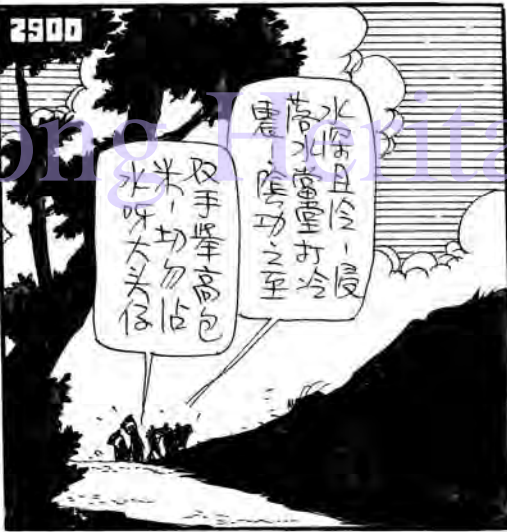 2900
水深且冷、浸
落水當堂打冷
震、陰功之至
双手擧高包
米、切勿沾
水呀大头仔
ong Herita